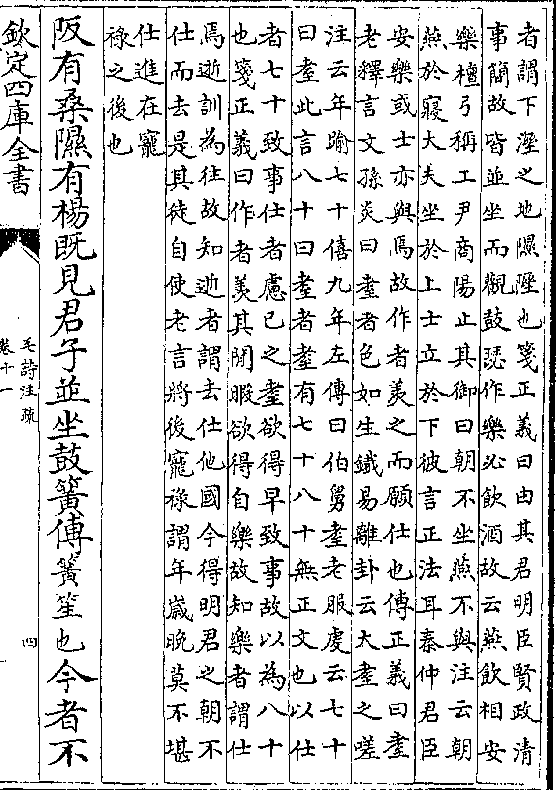 者謂下溼之地隰隰也箋正義曰由其君明臣賢政清
事簡故皆並坐而觀鼓瑟作樂必飲酒故云燕飲相安
樂檀弓稱工尹商陽止其御曰朝不坐燕不與注云朝
燕於寢大夫坐於上士立於下彼言正法耳秦仲君臣
安樂或士亦與焉故作者美之而願仕也傳正義曰耋
老釋言文孫炎曰耋者色如生鐵易離卦云大耋之嗟
注云年踰七十僖九年左傳曰伯舅耋老服虔云七十
曰耋此言八十曰耋者耋有七十八十無正文也以仕
者七十致事仕者慮己之耋欲得早致事故以為八十
也箋正義曰作者羙其閒暇欲得自樂故知樂者謂仕
焉逝訓為往故知逝者謂去仕他國今得明君之朝不
仕而去是其徒自使老言將後寵祿謂年歲晚莫不堪
仕進在寵
祿之後也
阪有桑隰有楊既見君子並坐鼓簧傳簧笙也今者不
欽定四庫全書
毛詩注疏
卷十一
四